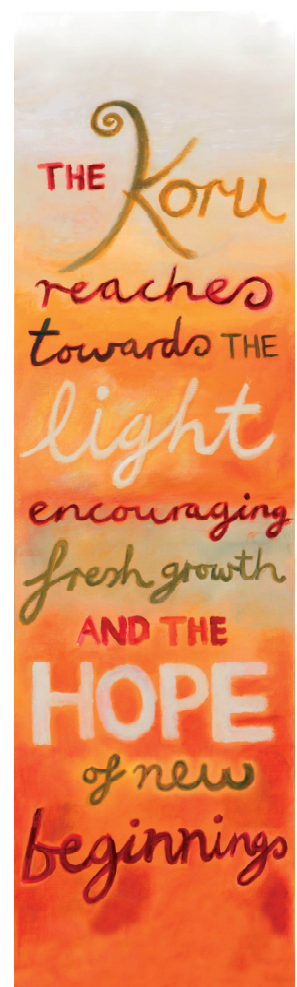 THE Koru
reaches
towards THE
light
encouraging
fresh growth
AND THE
HOPE
of new
beginnings